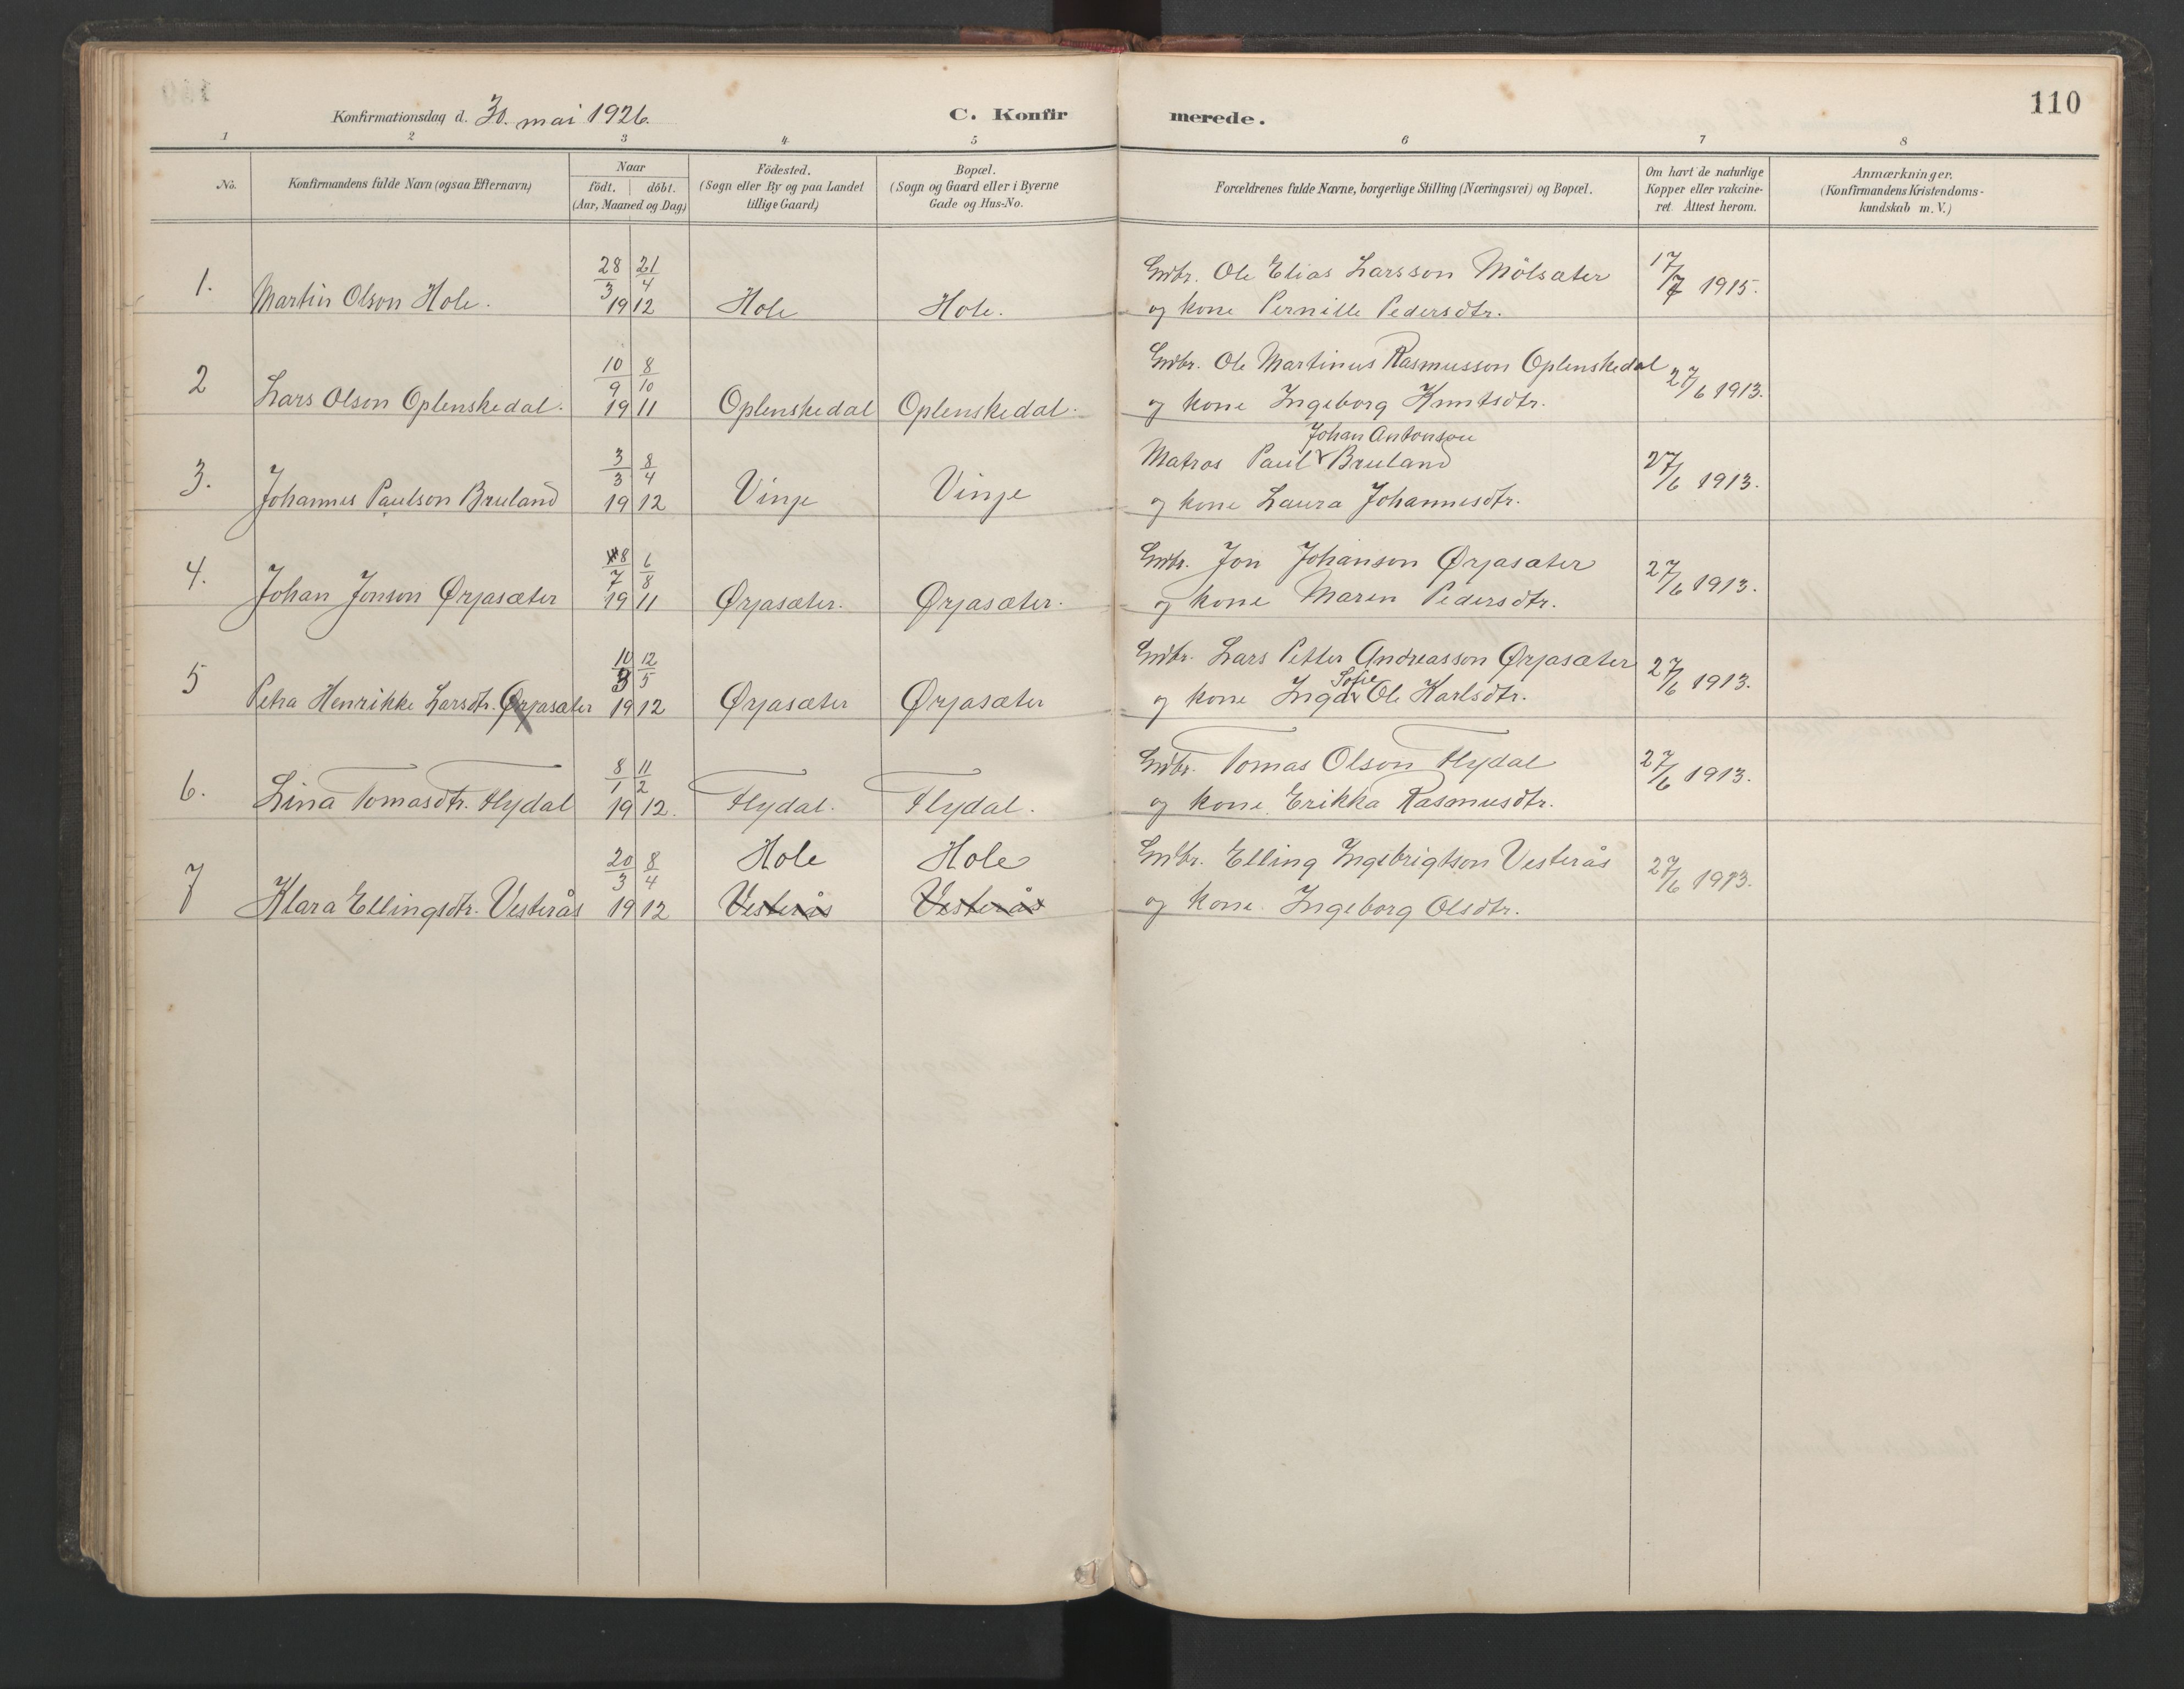 110
Konfirmationsdag d. 30. mai 1926.
C. Konfirmerede.
1 2 3 4 5 6 7 8
No. Konfirmandens fulde Navn (ogsaa Efternavn) Naar födt. döbt. (Aar, Maaned og Dag) Födested. (Sogn eller By og paa Landet tillige Gaard) Bopæl. (Sogn og Gaard eller i Byerne Gade og Hus-No. Forældrenes fulde Navne, borgerlige Stilling (Næringsvei) og Bopæl. Om havt de naturlige Kopper eller vakcineret. Attest herom. Anmærkninger. (Konfirmandens Kristendomskundskab m. V.)
1. Martin Olson Hole. 28/3 1912 21/4 Hole Hole. Gmbr. Ole Elias Larsson Mölsæter 17/7 1915.
og kone Pernille Pedersdtr.
2 Lars Olson Oplenskedal. 10/9 1911 8/10 Oplenskedal Oplenskedal. Gmbr. Ole Martinus Rasmusson Oplenskedal 27/6 1913.
og kone Ingeborg Knutsdtr.
3. Johannes Paulson Bruland 3/3 1912 8/4 Vinje Vinje Matros Paul Johan Antonson Bruland 27/6 1913.
og kone Laura Johannesdtr.
4. Johan Jonson Ørjasæter 8/7 1911 6/8 Ørjasæter. Ørjasæter. Gmbr. Jon Johanson Ørjasæter 27/6 1913.
og kone Maren Pedersdtr.
5 Petra Henrikke Larsdtr. Ørjasæter 10/3 1912 12/5 Ørjasæter Ørjasæter Gmbr. Lars Petter Andreasson Ørjasæter 27/6 1913.
og kone Inga Sofie Ole Karlsdtr.
6. Lina Tomasdtr. Flydal 8/1 1912. 11/2 Flydal. Flydal. Gmbr. Tomas Olson Flydal 27/6 1913.
og kone Erikka Rasmusdtr.
7 Klara Ellingsdtr. Vesterås 20/3 1912 8/4 Hole Vesterås Hole Vesterås Gmbr. Elling Ingebrigtson Vesterås 27/6 1913.
og kone Ingeborg Olsdtr.